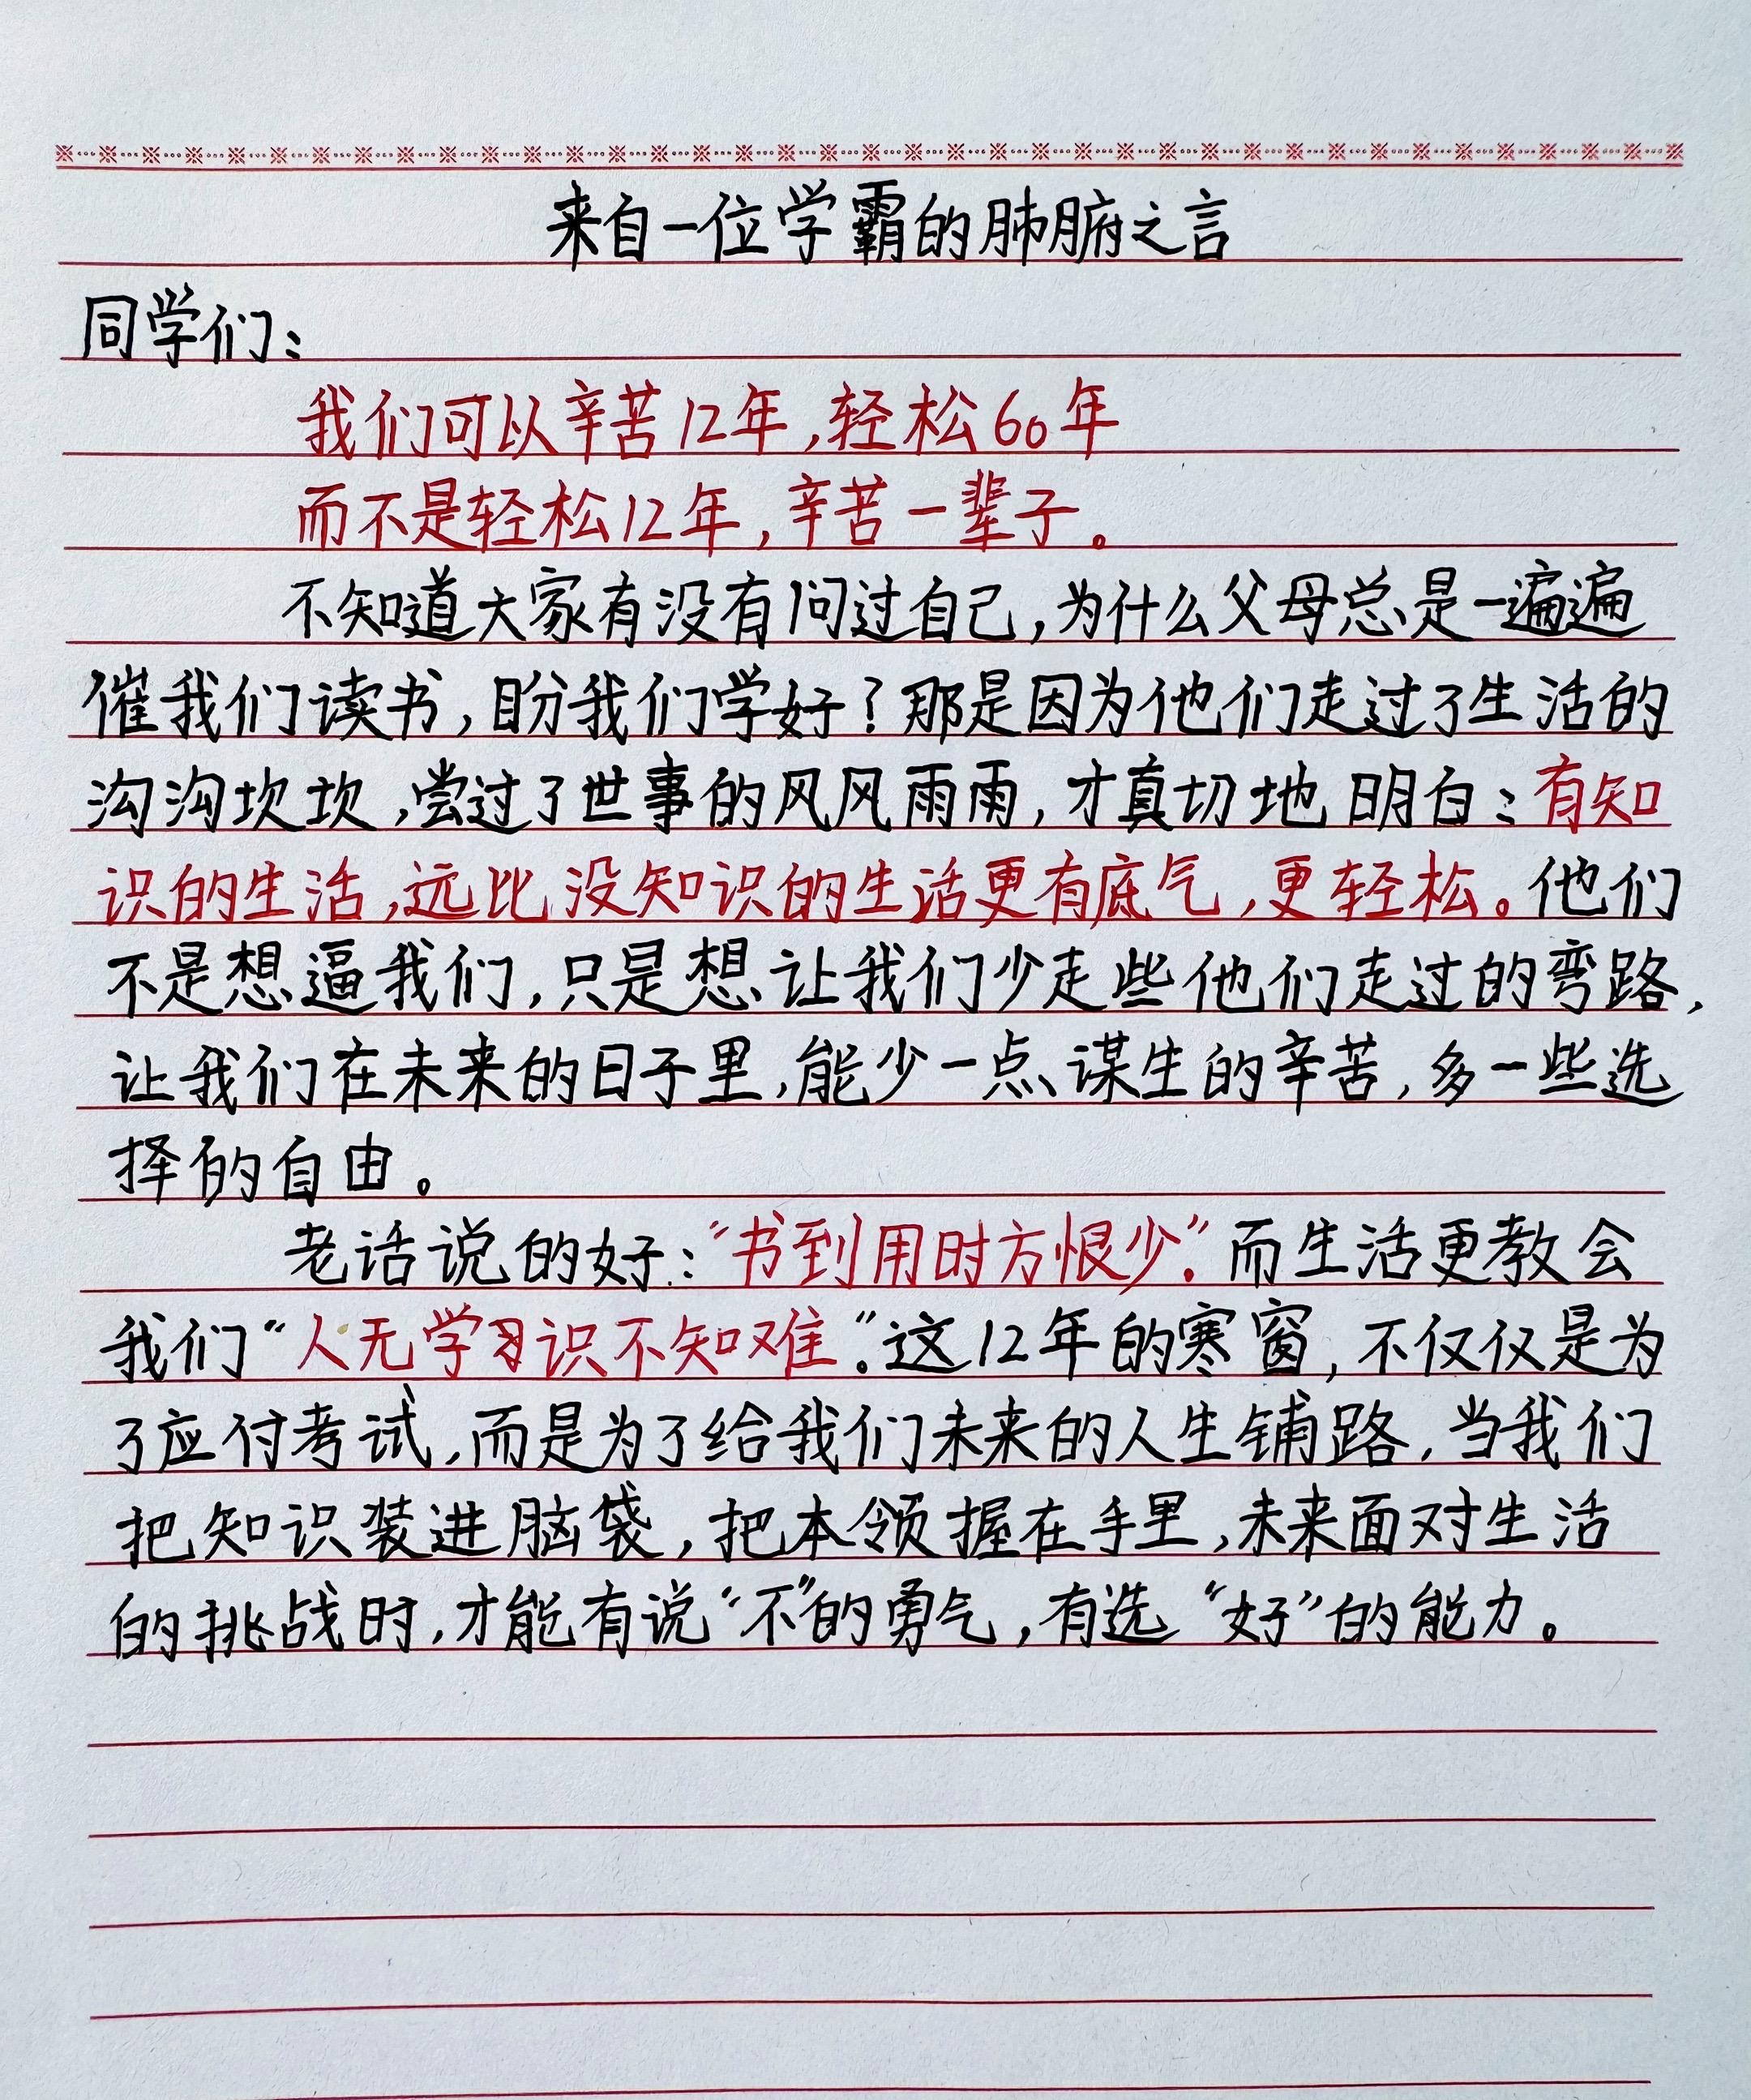 来自一位学霸的肺腑之言
同学们：
我们可以辛苦12年,轻松60年
而不是轻松12年,辛苦一辈子。
不知道大家有没有问过自己,为什么父母总是一遍遍
催我们读书,盼我们学好？那是因为他们走过了生活的
沟沟坎坎,尝过了世事的风风雨雨,才真切地明白：有知
识的生活,远比没知识的生活更有底气,更轻松。他们
不是想逼我们,只是想让我们少走些他们走过的弯路,
让我们在未来的日子里,能少一点谋生的辛苦,多一些选
择的自由。
老话说的好：“书到用时方恨少”.而生活更教会
我们“人无学习识不知难”.这12年的寒窗,不仅仅是为
了应付考试,而是为了给我们未来的人生铺路,当我们
把知识装进脑袋,把本领握在手里,未来面对生活
的挑战时,才能有说“不”的勇气,有选“好”的能力。